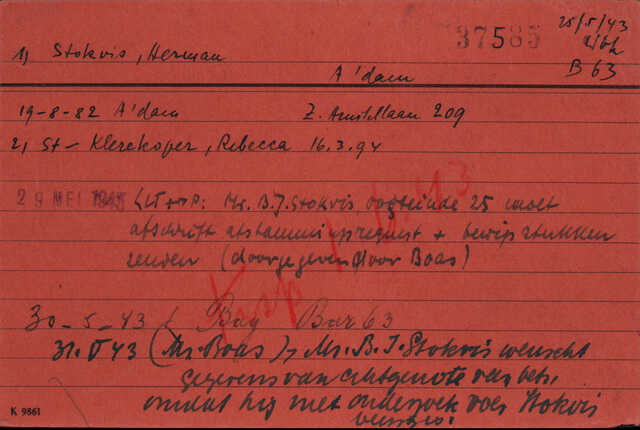 37585
25/5/43
1) Stokvis, Herman
A'dam
B 63
19-8-82 A'dam Z. Amstellaan 209
2) St- Klerekoper, Rebecca 16.3.94
29 MEI 1943 Mr. B.J. Stokvis 25 moet
afschrift afstammingsrequest + bewijsstukken
zenden (doorgegeven door Boas)
30-5-43 Bar 63
31.V 43 (Mr. Boas) Mr. B.J. Stokvis wenscht
gegevens van echtgenote van betr.
omdat hij met onderzoek voor Stokvis
bezig is.
K 9861